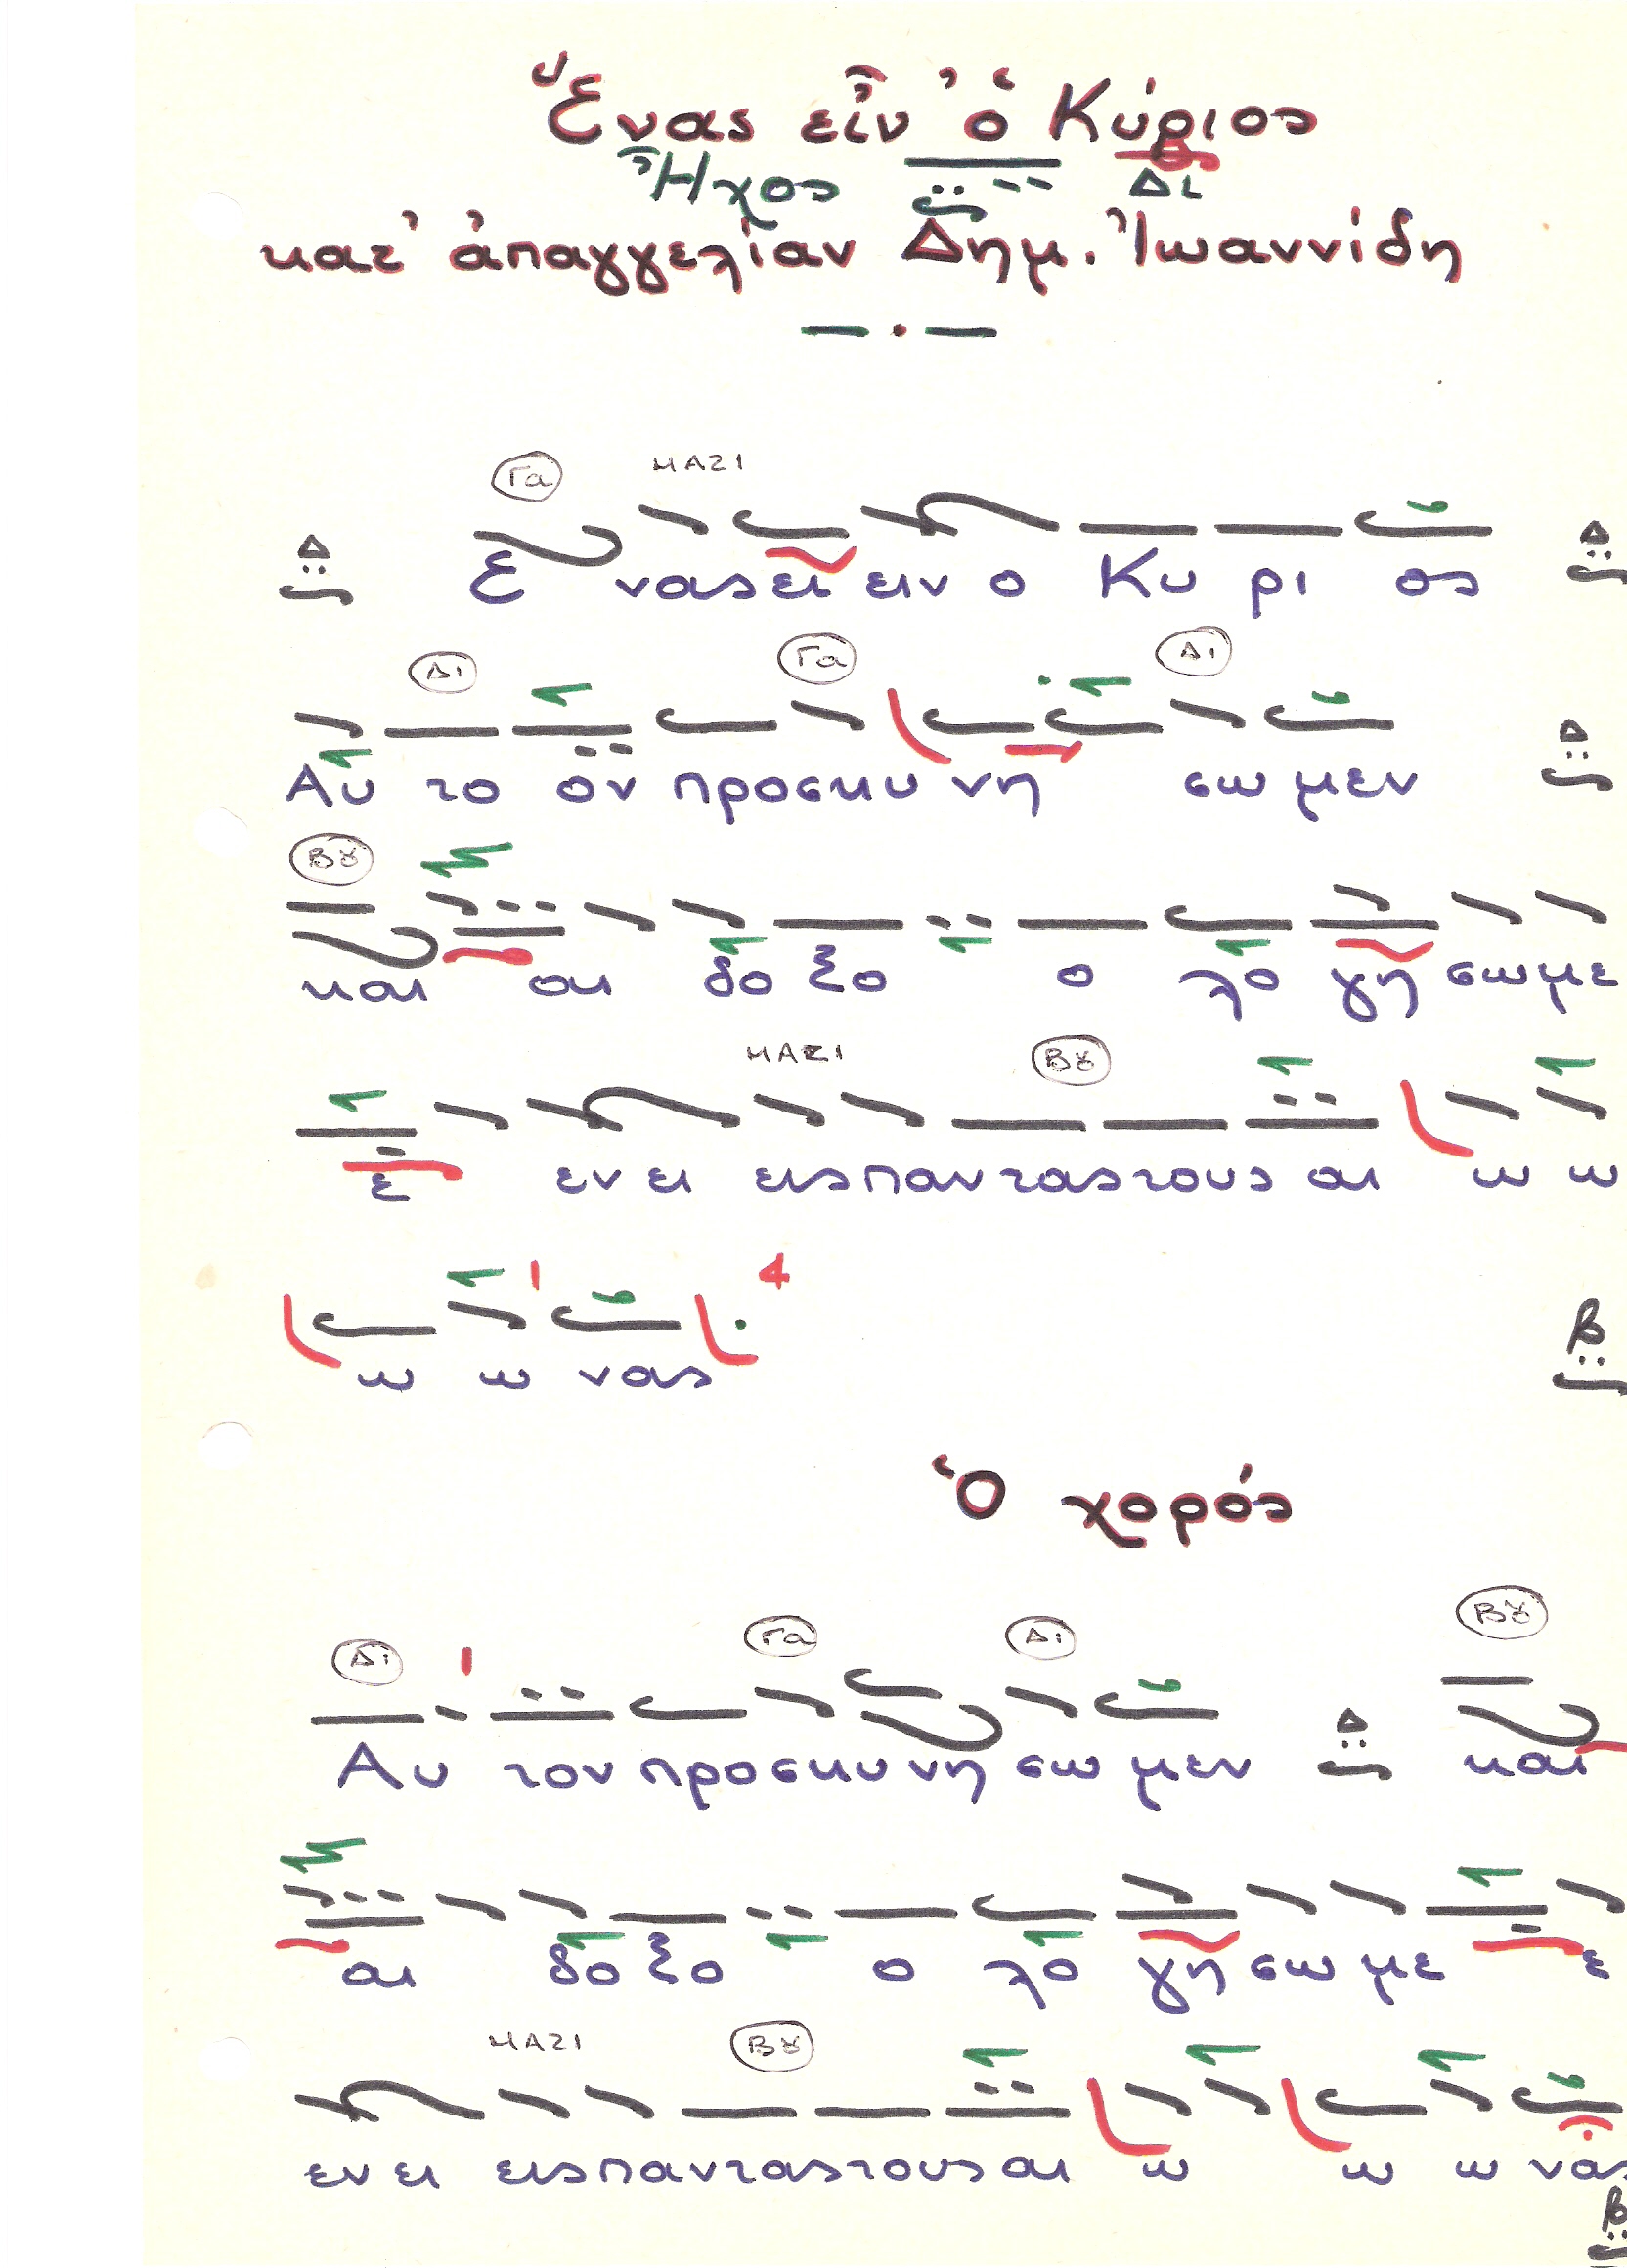 Ἕνας εἶν' ὁ Κύριος
Ἦχος Δι
κατ' ἀπαγγελίαν Δημ. Ἰωαννίδη
Γα ΜΑΖΙ
Δ Ε νας ει ειν ο Κυ ρι ος Δ
Δι Γα Δι
Αυ το ον προσκυ νη σω μεν Δ
Βȣ
και αι δο ξο ο λο γη σω με
ΜΑΖΙ Βȣ
ε εν ει εις παν τας τους αι ω ω
1 4
ω ω νας β
Ὁ χορός
Δι 1 Γα Δι Βȣ
Αυ τον προσκυ νη σω μεν Δ και
αι δο ξο ο λο γη σω με ε
ΜΑΖΙ Βȣ
εν ει εις παν τας τους αι ω ω ω νας
β